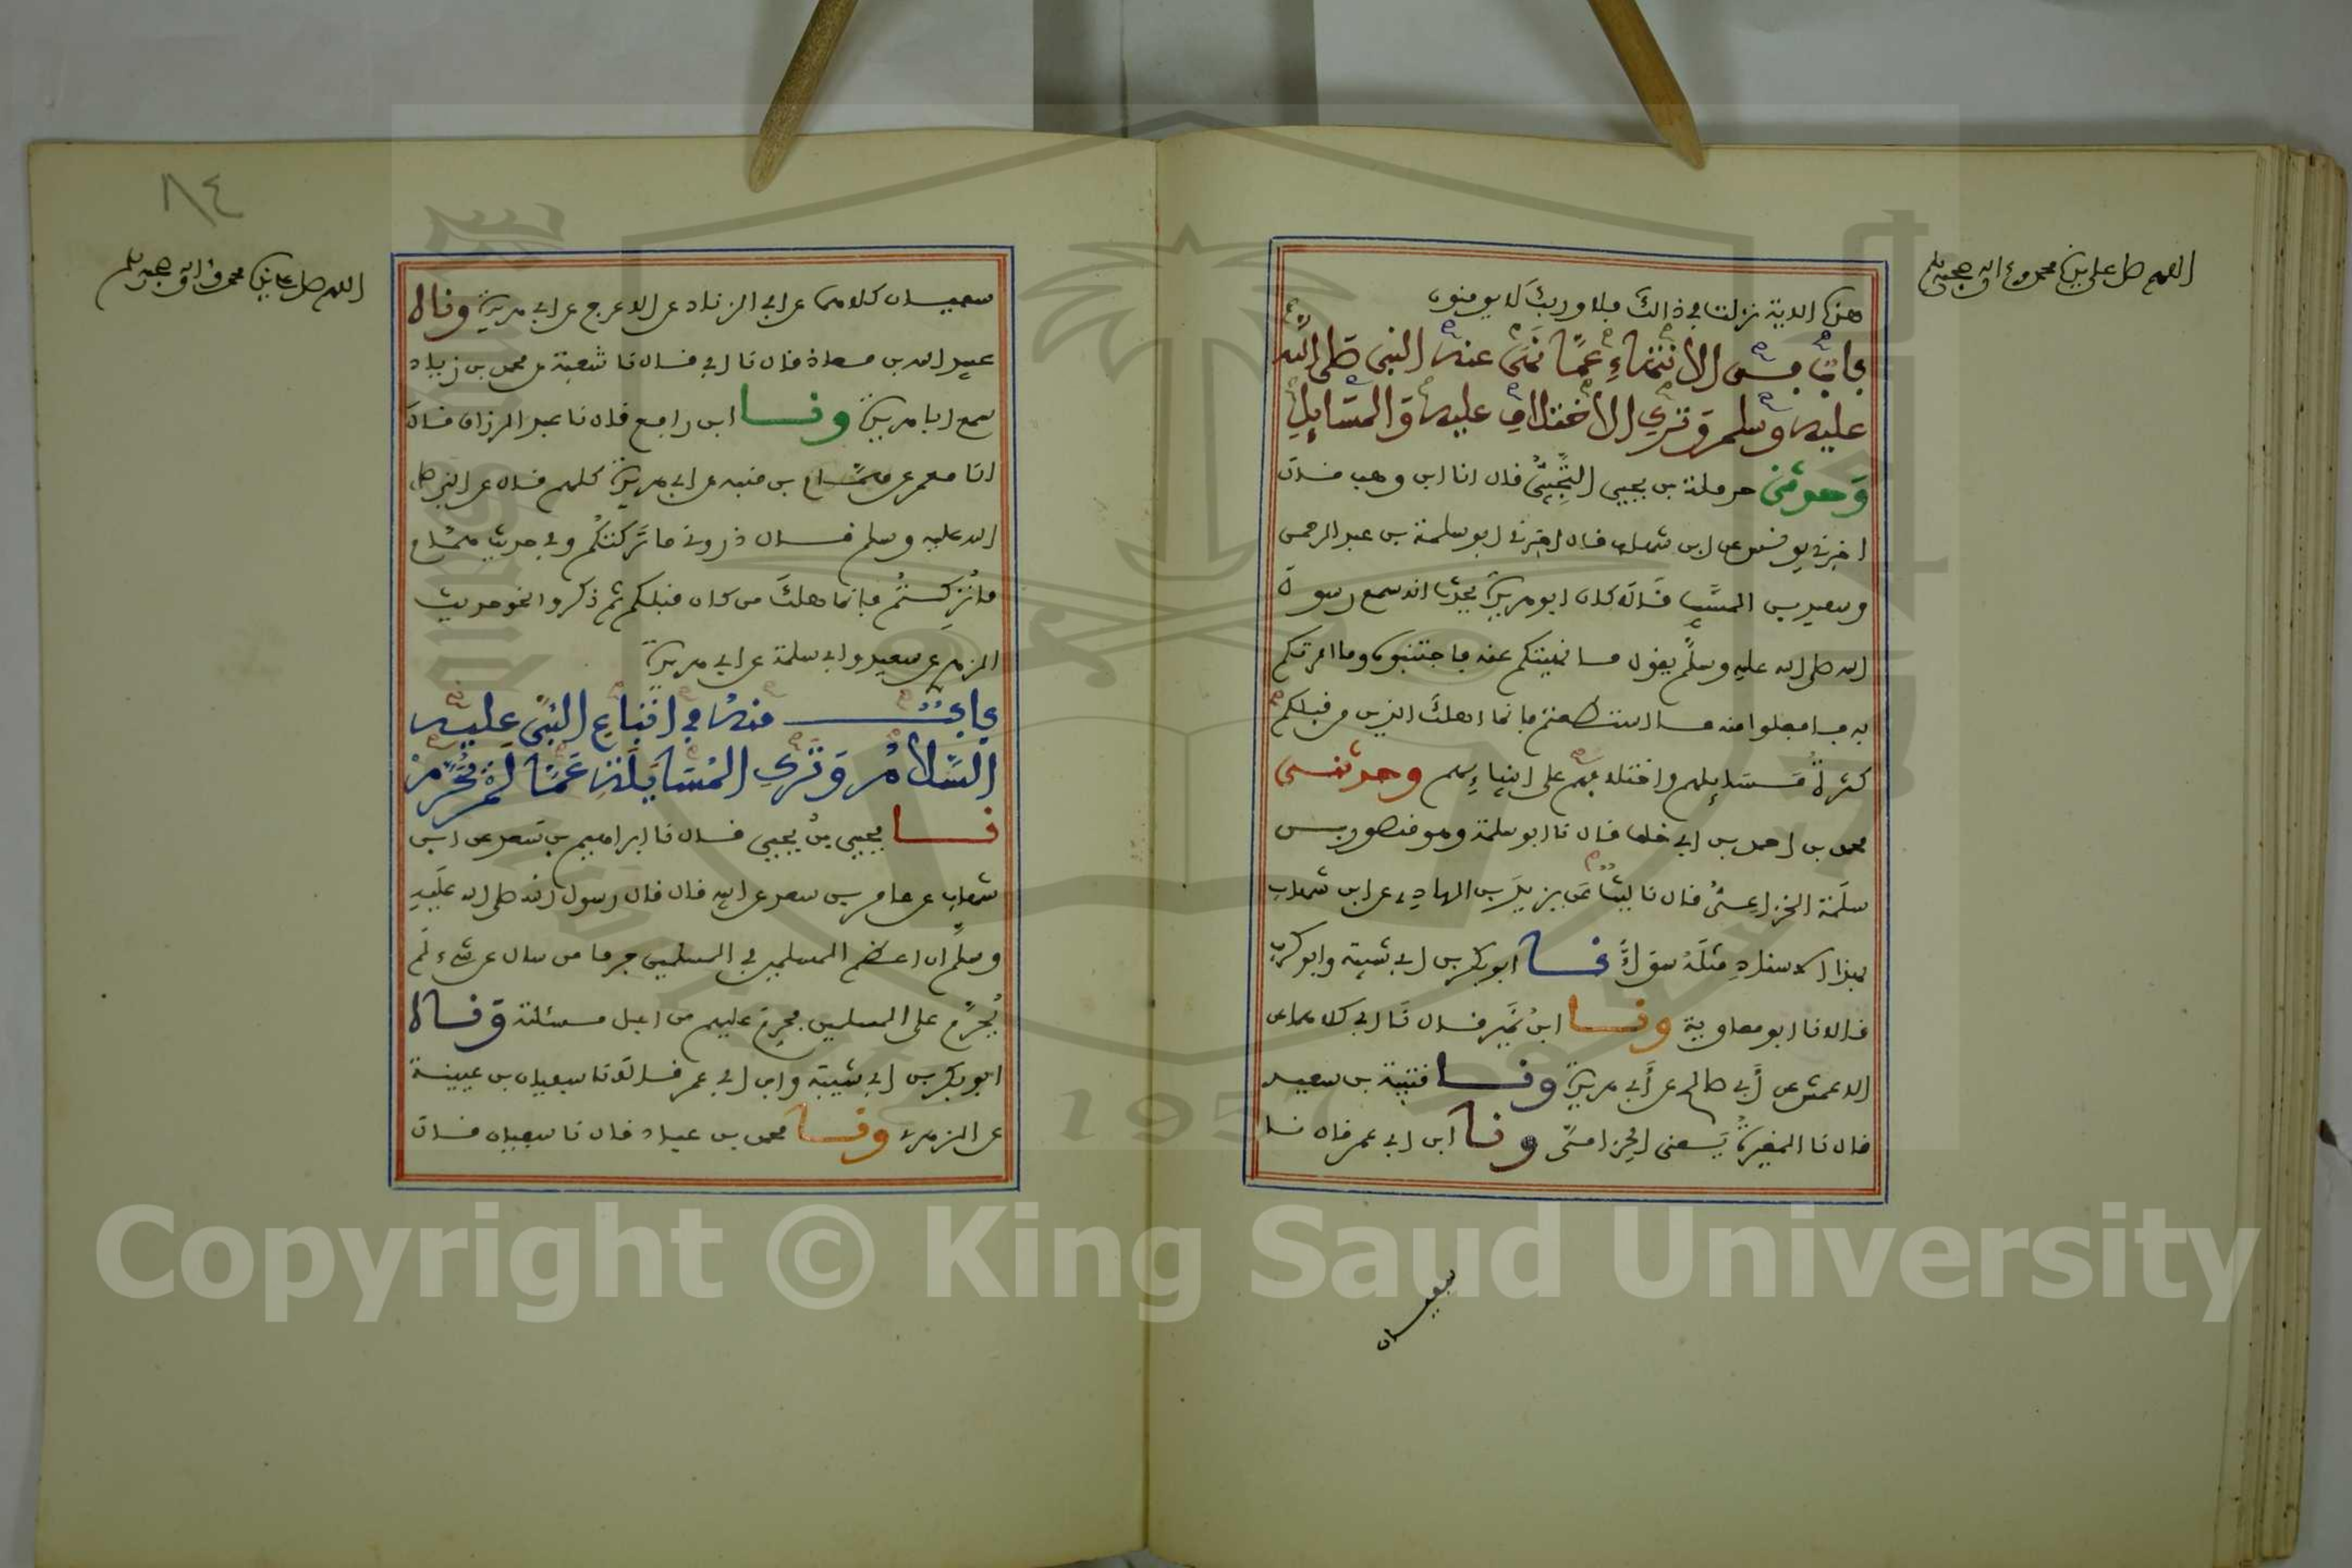 اللهم صل على سيدنا محمد وعلى اله وصحبه وسلم
هذه الاية نزلت في ذالك فلا وربك لا يومنون
باب في الانتهاء عما نهى عنه النبي صلى الله
عليه وسلم وترك الاختلاف عليه والمسايل
وحدثني حرملة بن يحيى التجيبي قال انا ابن وهب قال
اخبرني يونس عن ابن شهاب قال اخبرني ابو سلمة بن عبد الرحمن
وسعيد بن المسيب قال كان ابو هريرة يحدث انه سمع رسول
الله صلى الله عليه وسلم يقول ما نهيتكم عنه فاجتنبوه وما امرتكم
به فافعلوا منه ما استطعتم فانما اهلك الذين من قبلكم
كثرة مسايلهم واختلافهم على انبيائهم وحدثني
محمد بن احمد بن ابي خلف قال نا ابو سلمة وهو منصور بن
سلمة الخزاعي قال نا ليث عن يزيد بن الهادي عن ابن شهاب
بهذا الاسناد مثله سواء نا ابو بكر بن ابي شيبة وابو كريب
قالا نا ابو معاوية ونا ابن نمير قال نا ابي كلاهما عن
الاعمش عن أبي صالح عن أبي هريرة ونا قتيبة بن سعيد
قال نا المغيرة يعني الحزامي ونا ابن ابي عمر قال نا
سفيان
٨٤
اللهم صل على سيدنا محمد وعلى اله وصحبه وسلم
سفيان كلاهما عن ابي الزناد عن الاعرج عن ابي هريرة ونا
عبيد الله بن معاذ قال نا ابي قال نا شعبة عن محمد بن زياد
سمع ابا هريرة ونا ابن رافع قال نا عبد الرزاق قال
انا معمر عن همام بن منبه عن ابي هريرة كلهم قال عن النبي صلى
الله عليه وسلم قال ذروني ما تركتكم وفي حديث همام
ما تركتم فانما هلك من كان قبلكم ثم ذكروا نحو حديث
الزهري عن سعيد وابي سلمة عن ابي هريرة
باب منه في اتباع النبي عليه
السلام وترك المسايلة عما لم يحرم
نا يحيى بن يحيى قال نا ابراهيم بن سعد عن ابن
شهاب عن عامر بن سعد عن ابيه قال قال رسول الله صلى الله عليه
وسلم ان اعظم المسلمين في المسلمين جرما من سال عن شيء لم
يحرم على المسلمين فحرم عليهم من اجل مسئلته ونا
ابو بكر بن ابي شيبة وابن ابي عمر قالا نا سفيان بن عيينة
عن الزهري ونا محمد بن عباد قال نا سفيان قال
Copyright © King Saud University
1957